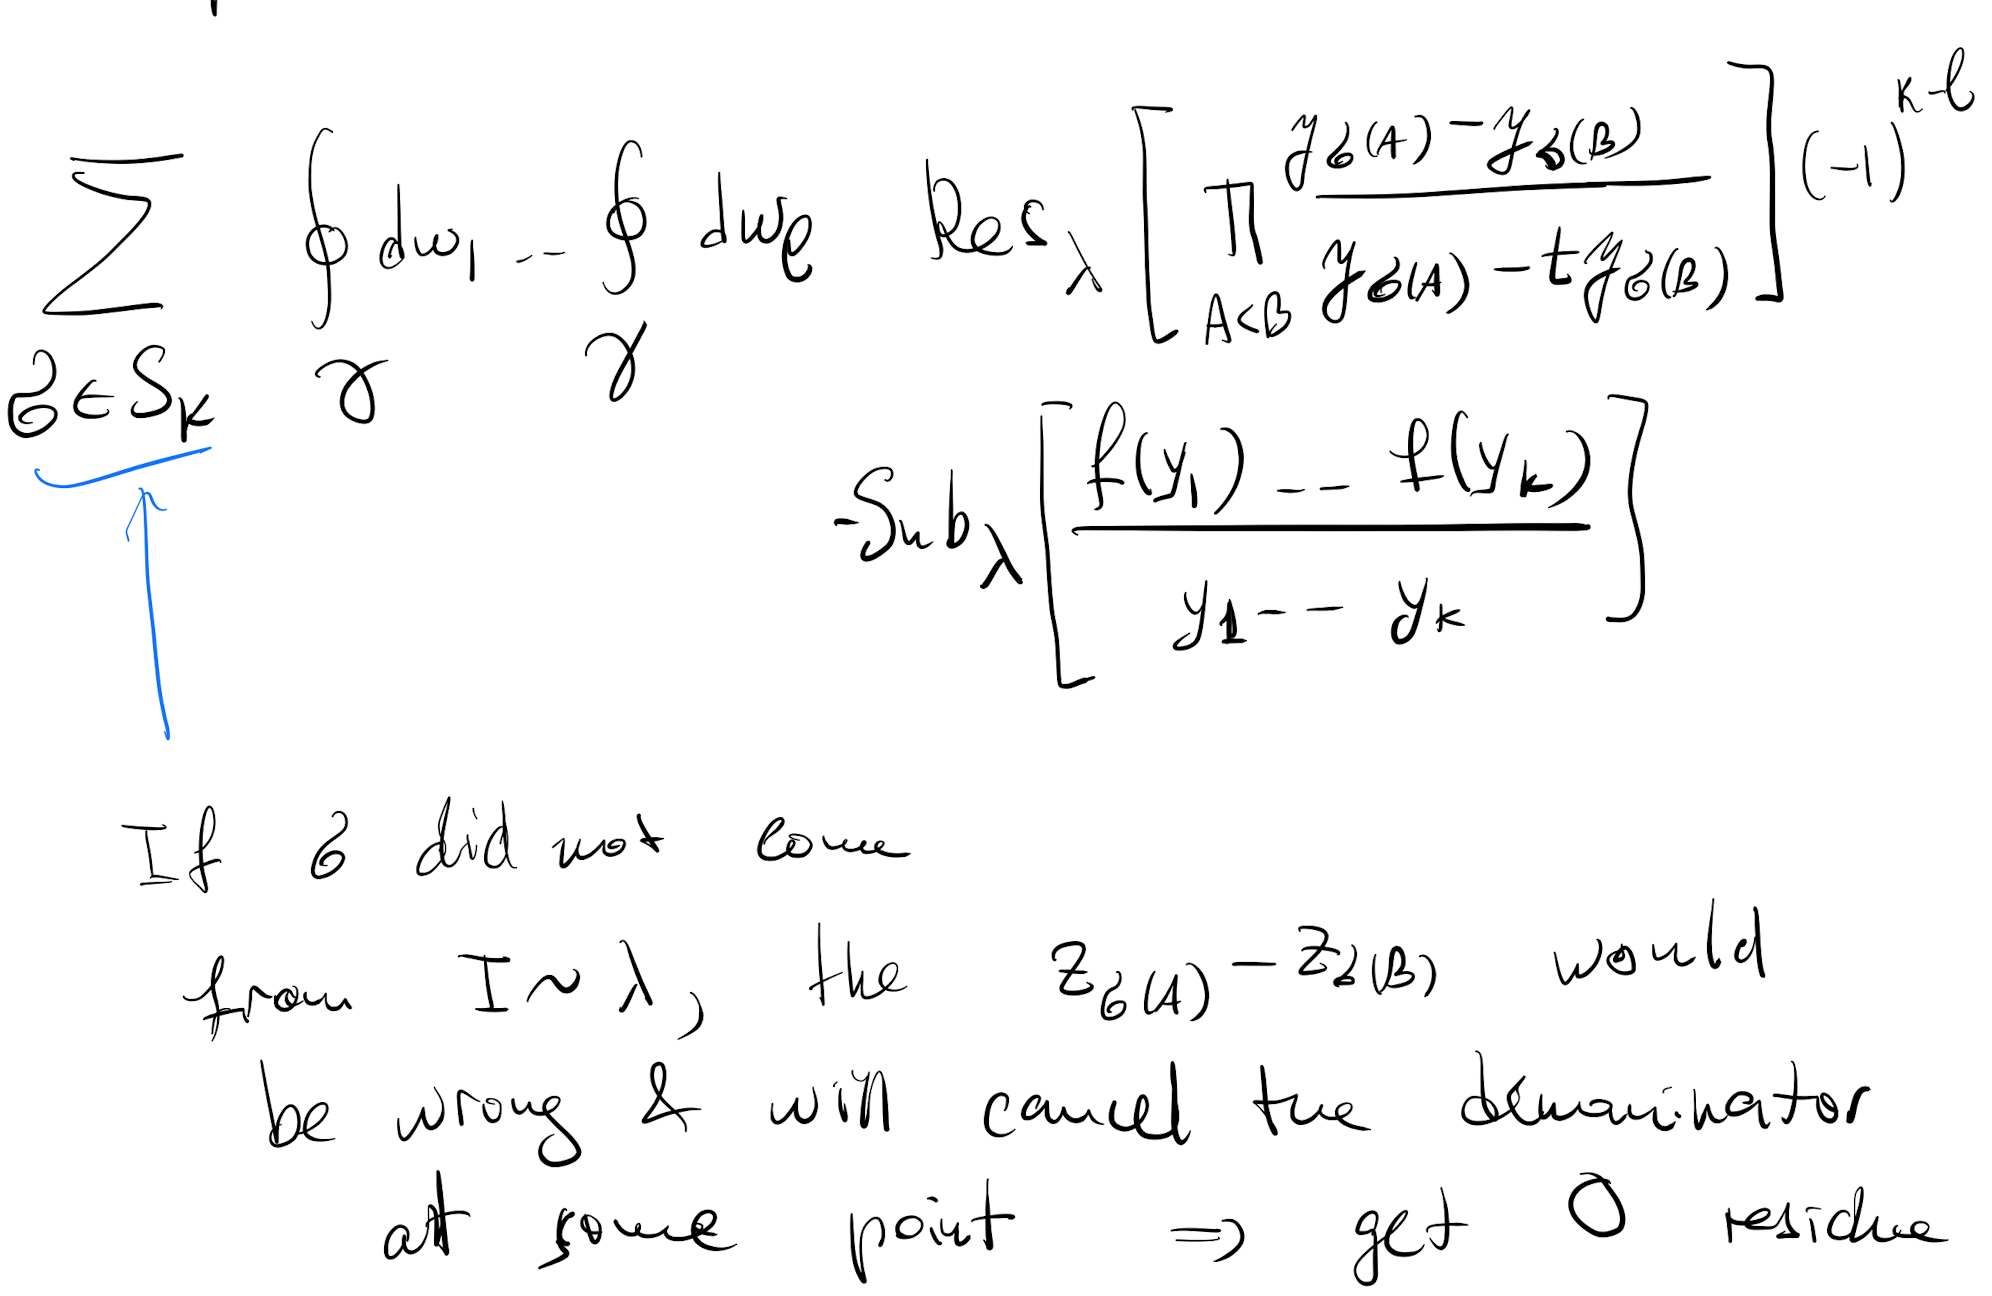 \sum_{σ∈S_k} \oint_γ dw_1 -- \oint_γ dw_ℓ Res_λ [ \prod_{A<B} \frac{y_{σ(A)} - y_{σ(B)}}{y_{σ(A)} - t y_{σ(B)}} ] (-1)^{k-ℓ}
·Sub_λ [ \frac{f(y_1) --- f(y_k)}{y_1 --- y_k} ]
If σ did not come
from I ~ λ, the z_{σ(A)} - z_{σ(B)} would
be wrong & will cancel the denominator
at some point ⇒ get 0 residue